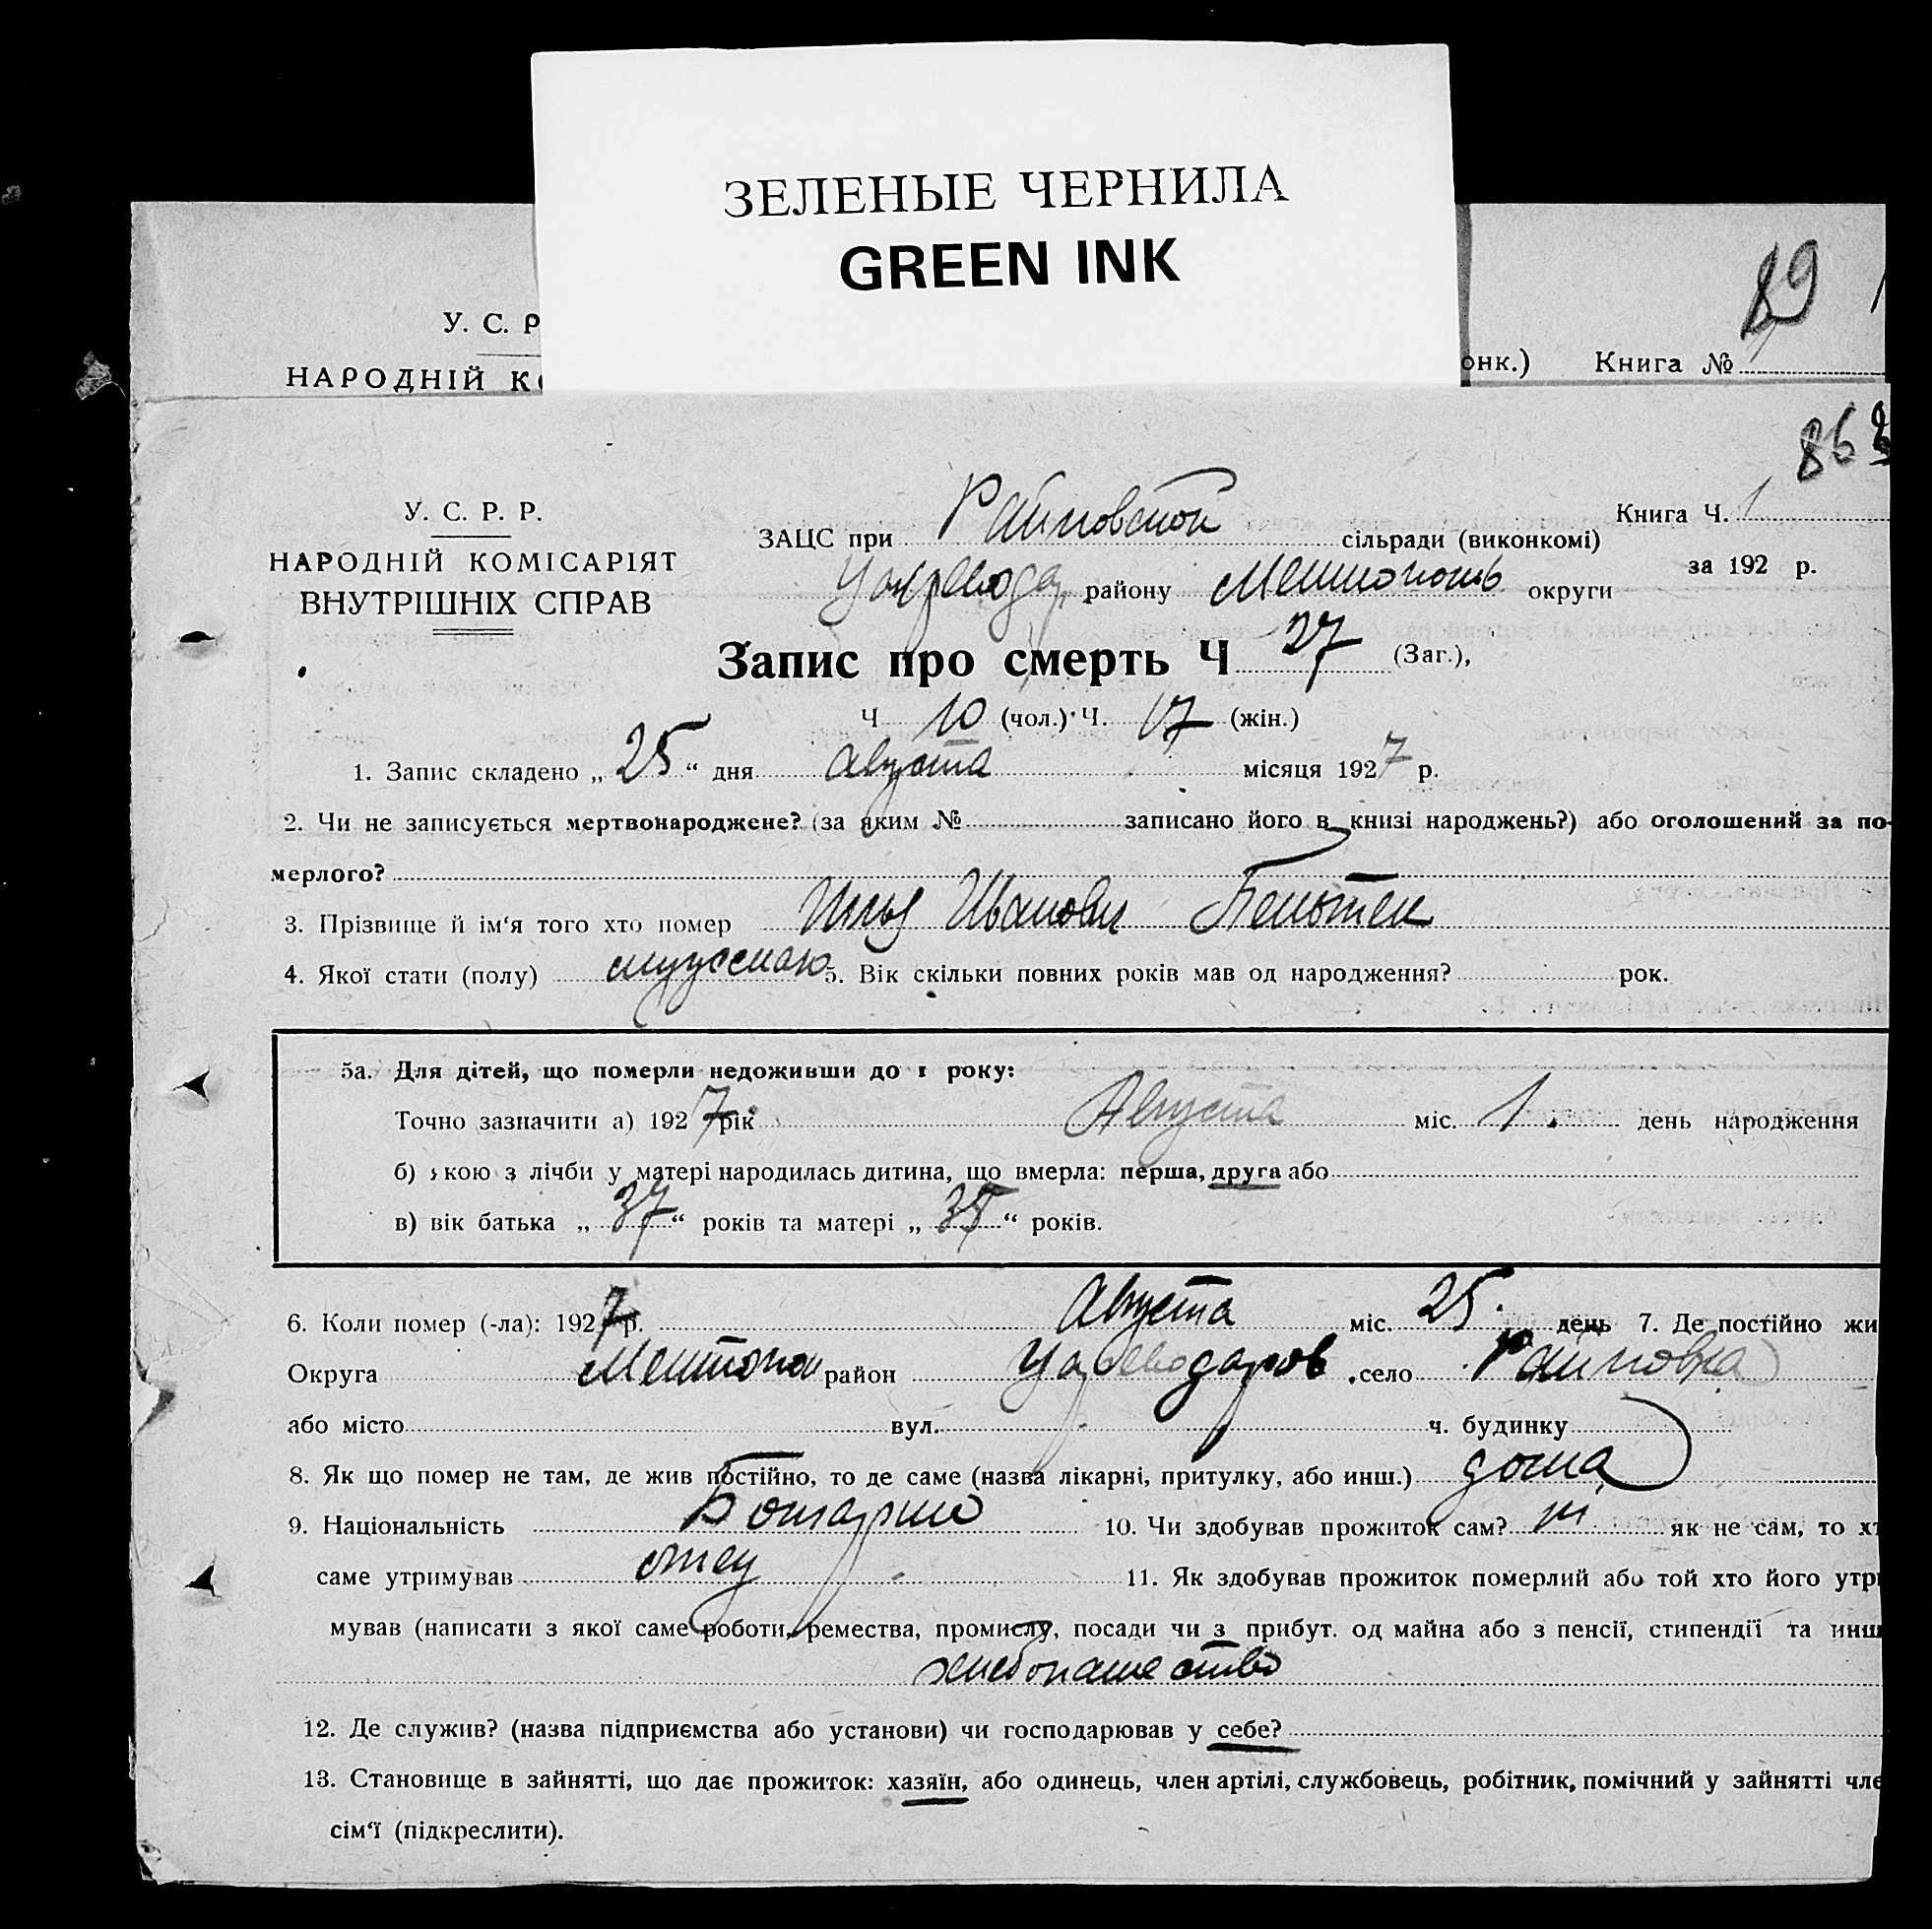 ЗЕЛЕНЫЕ ЧЕРНИЛА
GREEN INK
89
У. С. Р
НАРОДНІЙ К
онк.) Книга №
86
У. С. Р. Р.
НАРОДНІЙ КОМІСАРІЯТ
ВНУТРІШНІХ СПРАВ
Книга Ч. 1
за 192 р.
ЗАЦС при Райновской сільради (виконкомі)
району Мелитополь округи
Запис про смерть Ч 27 (Заг.),
Ч 10 (чол.) Ч. 17 (жін.)
1. Запис складено „ 25 “ дня Августа місяця 1927 р.
2. Чи не записується мертвонароджене? (за яким № записано його в книзі народжень?) або оголошений за по-
мерлого?
3. Прізвище й ім‘я того хто помер Илья Иванович
4. Якої стати (полу) 5. Вік скільки повних років мав од народження? рок.
5а. Для дітей, що померли недоживши до 1 року:
Точно зазначити а) 1927 рік Августа міс. 1. день народження
б) якою з лічби у матері народилась дитина, що вмерла: перша, друга або
в) вік батька „ 37 “ років та матері „ 35 “ років.
6. Коли помер (-ла): 1927 р. Августа міс. 25. день 7. Де постійно жи
Округа Мелитопол район Цареводаров село Райновка
або місто вул. ч. будинку
8. Як що помер не там, де жив постійно, то де саме (назва лікарні, притулку, або инш.) дома
9. Національність 10. Чи здобував прожиток сам? як не сам, то хт
саме утримував отец 11. Як здобував прожиток померлий або той хто його утри
мував (написати з якої саме роботи, ремества, промислу, посади чи з прибут. од майна або з пенсії, стипендії та инш
хлебопашество
12. Де служив? (назва підприємства або установи) чи господарював у себе?
13. Становище в зайнятті, що дає прожиток: хазяїн, або одинець, член артілі, службовець, робітник, помічний у зайнятті чле
сім‘ї (підкреслити).